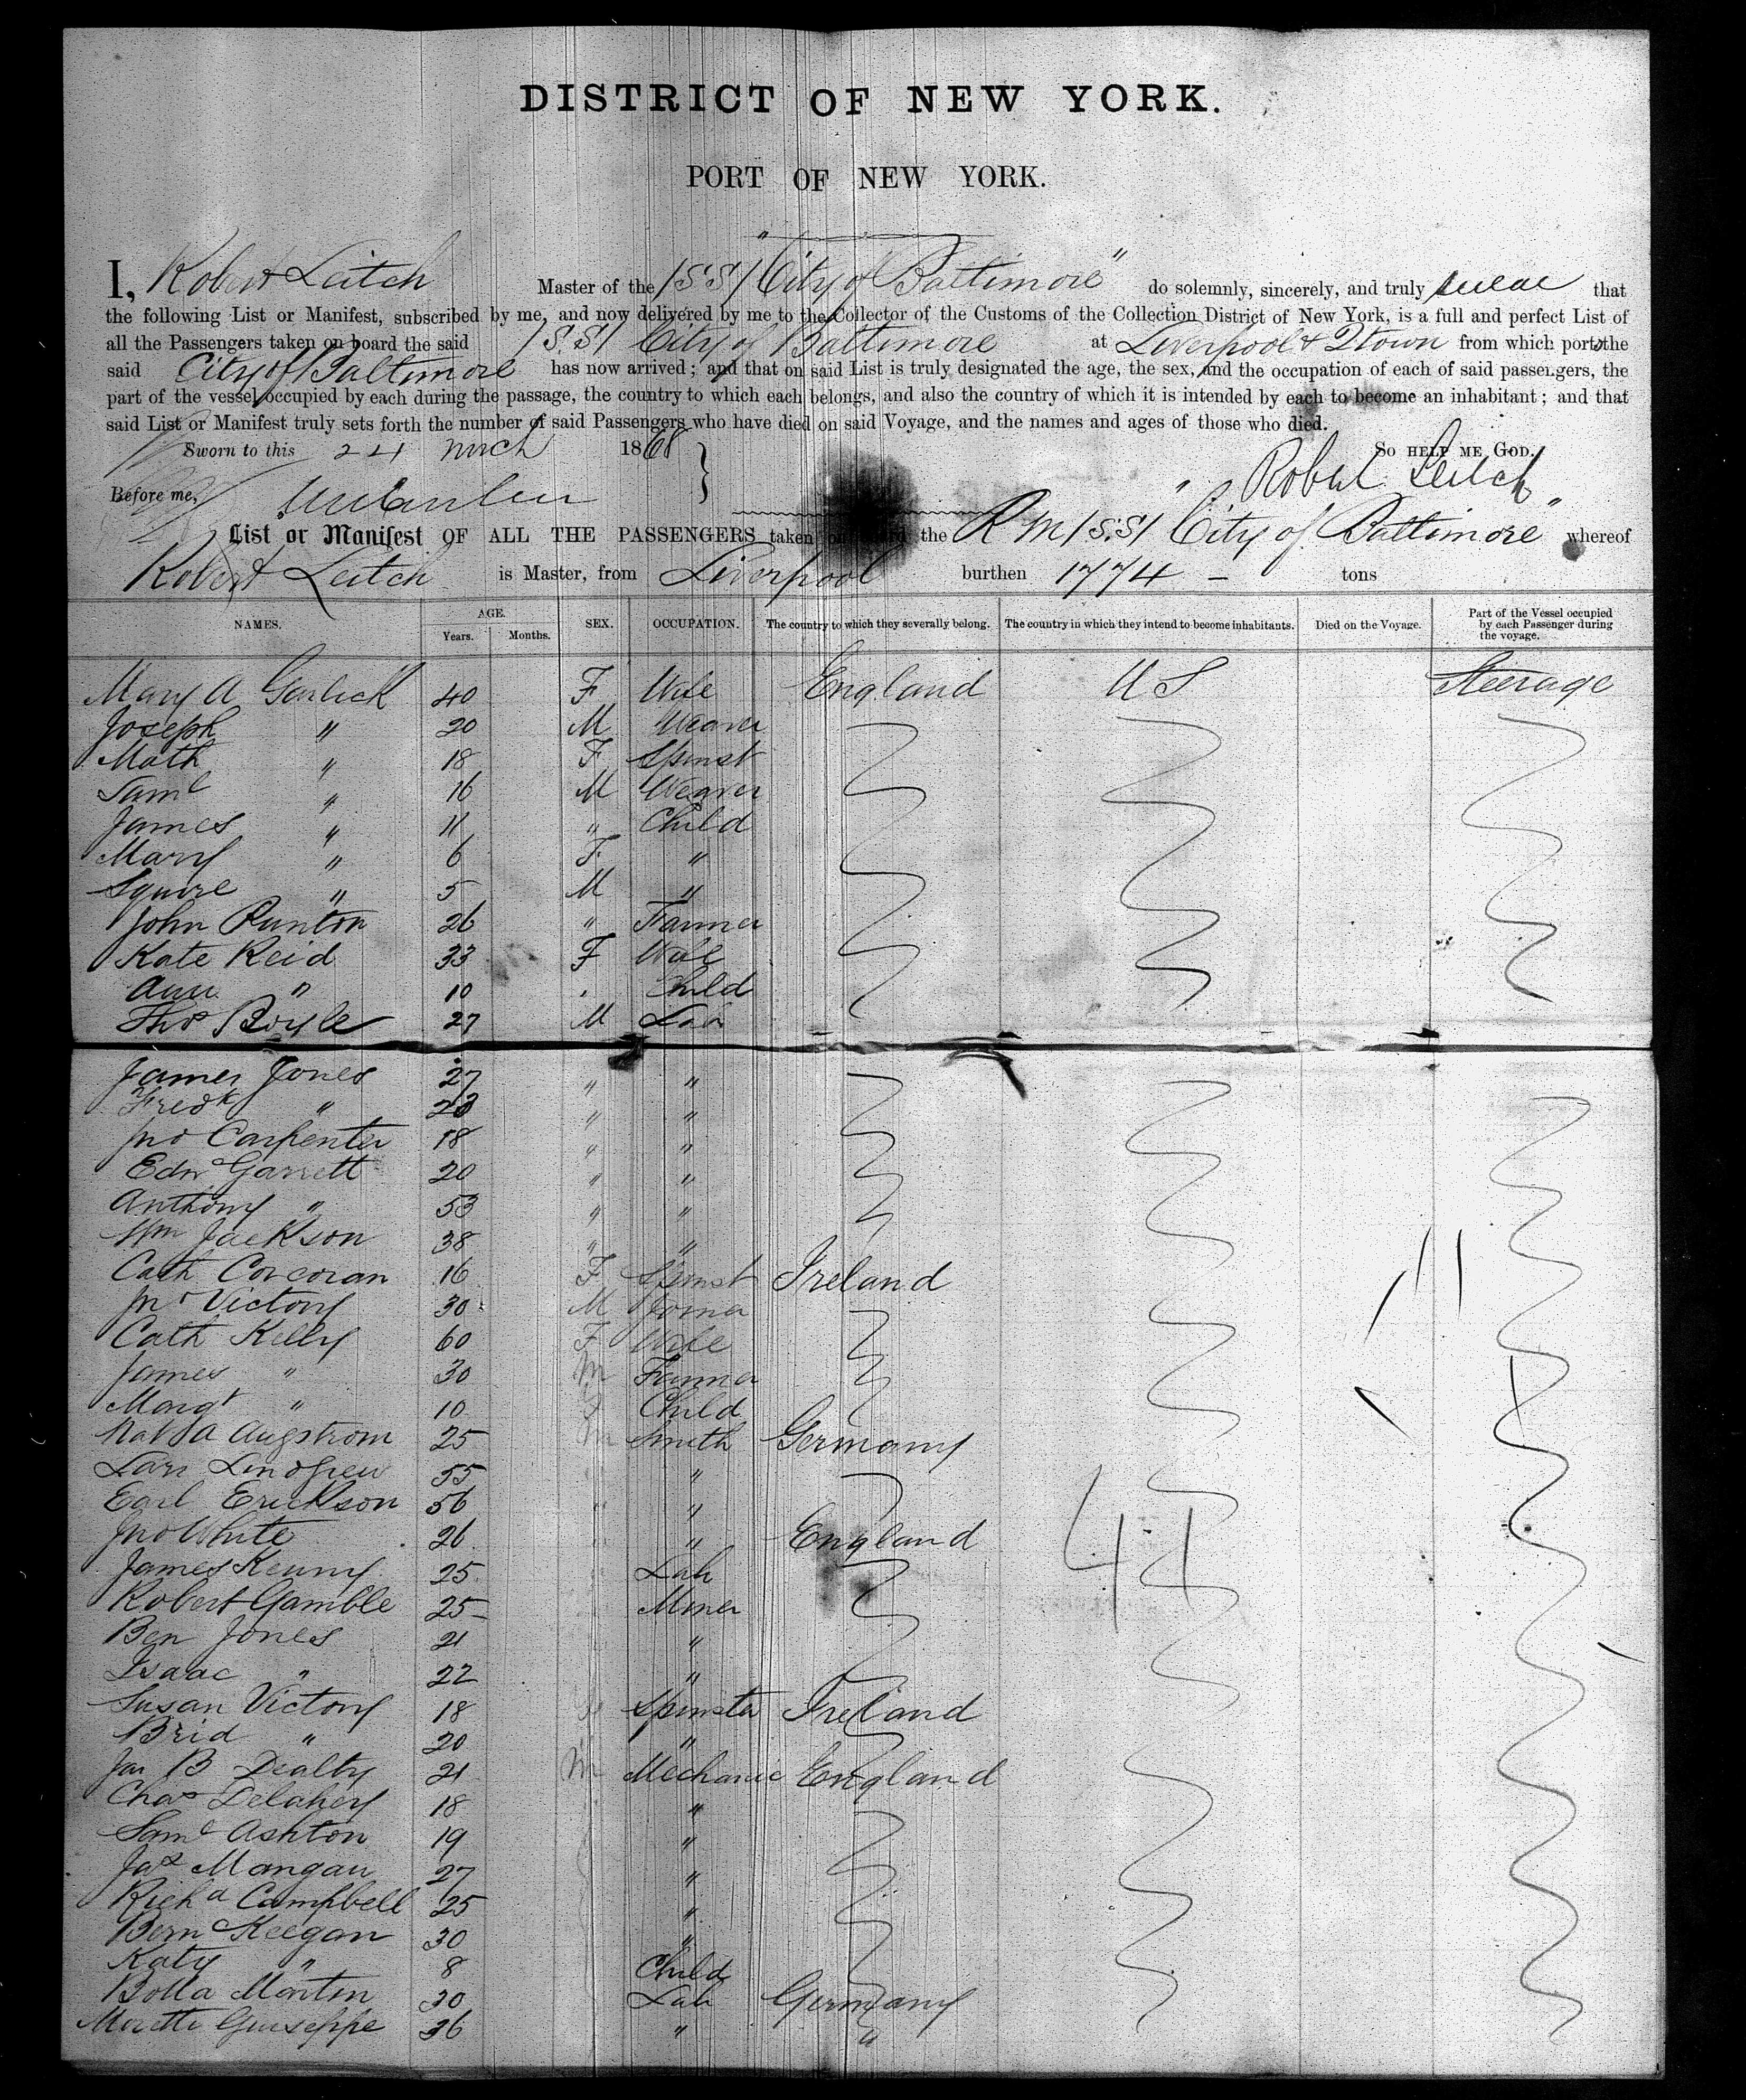 DISTRICT OF NEW YORK.
PORT OF NEW YORK.
I, Robert Leitch Master of the /S S/ "City of Baltimore" do solemnly, sincerely, and truly swear that
the following List or Manifest, subscribed by me, and now delivered by me to the Collector of the Customs of the Collection District of New York, is a full and perfect List of
all the Passengers taken on board the said /S.S/ City of Baltimore at Liverpool & Qtown from which ports the
said City of Baltimore has now arrived; and that on said List is truly designated the age, the sex, and the occupation of each of said passengers, the
part of the vessel occupied by each during the passage, the country to which each belongs, and also the country of which it is intended by each to become an inhabitant; and that
said List or Manifest truly sets forth the number of said Passengers who have died on said Voyage, and the names and ages of those who died.
Sworn to this 24 March 1868 } So HELP ME GOD.
Before me, Robert Leitch
List or Manifest OF ALL THE PASSENGERS taken on board the R M /S.S/ "City of Baltimore" whereof
Robert Leitch is Master, from Liverpool burthen 1774 - tons
NAMES. AGE. Years. Months. SEX. OCCUPATION. The country to which they severally belong. The country in which they intend to become inhabitants. Died on the Voyage. Part of the Vessel occupied by each Passenger during the voyage.
Mary A Garlick 40 F Wife England U S Steerage
Joseph " 20 M Weaver
Math " 18 F Spinst
Saml " 16 M Weaver
James " 11 " Child
Mary " 6 F "
Squire " 5 M "
John Runton 26 " Farmer
Kate Reid 33 F Wife
Ann " 10 Child
Thos Boyle 27 M Lab
James Jones 27 " "
Fredk " 23 " "
Jno Carpenter 18 " "
Edw Garrett 20 " "
Anthony " 53 " "
Wm Jackson 38 " "
Cath Corcoran 16 F Spinst Ireland
Jno Victory 30 M Joiner
Cath Kelly 60 F Wife
James " 30 M Farmer
Margt " 10 Child
Augstrom 25 M Smith Germany
Lars Lindgren 55 "
Earl Erickson 56 " "
Jno White 26 " England
James Kenny 25 Lab
Robert Gamble 25 Miner
Ben Jones 21 "
Isaac " 22 "
Susan Victory 18 Spinster Ireland
Brid " 20 "
Jas B Dealty 21 M Mechanic England
Chas Delahey 18 "
Saml Ashton 19 "
Jas Mangan 27 "
Richd Campbell 25 "
Bern Keegan 30 "
Katy " 8 Child
Botta Martin 30 Lab Germany
Moretti Guiseppe 36 " "
41